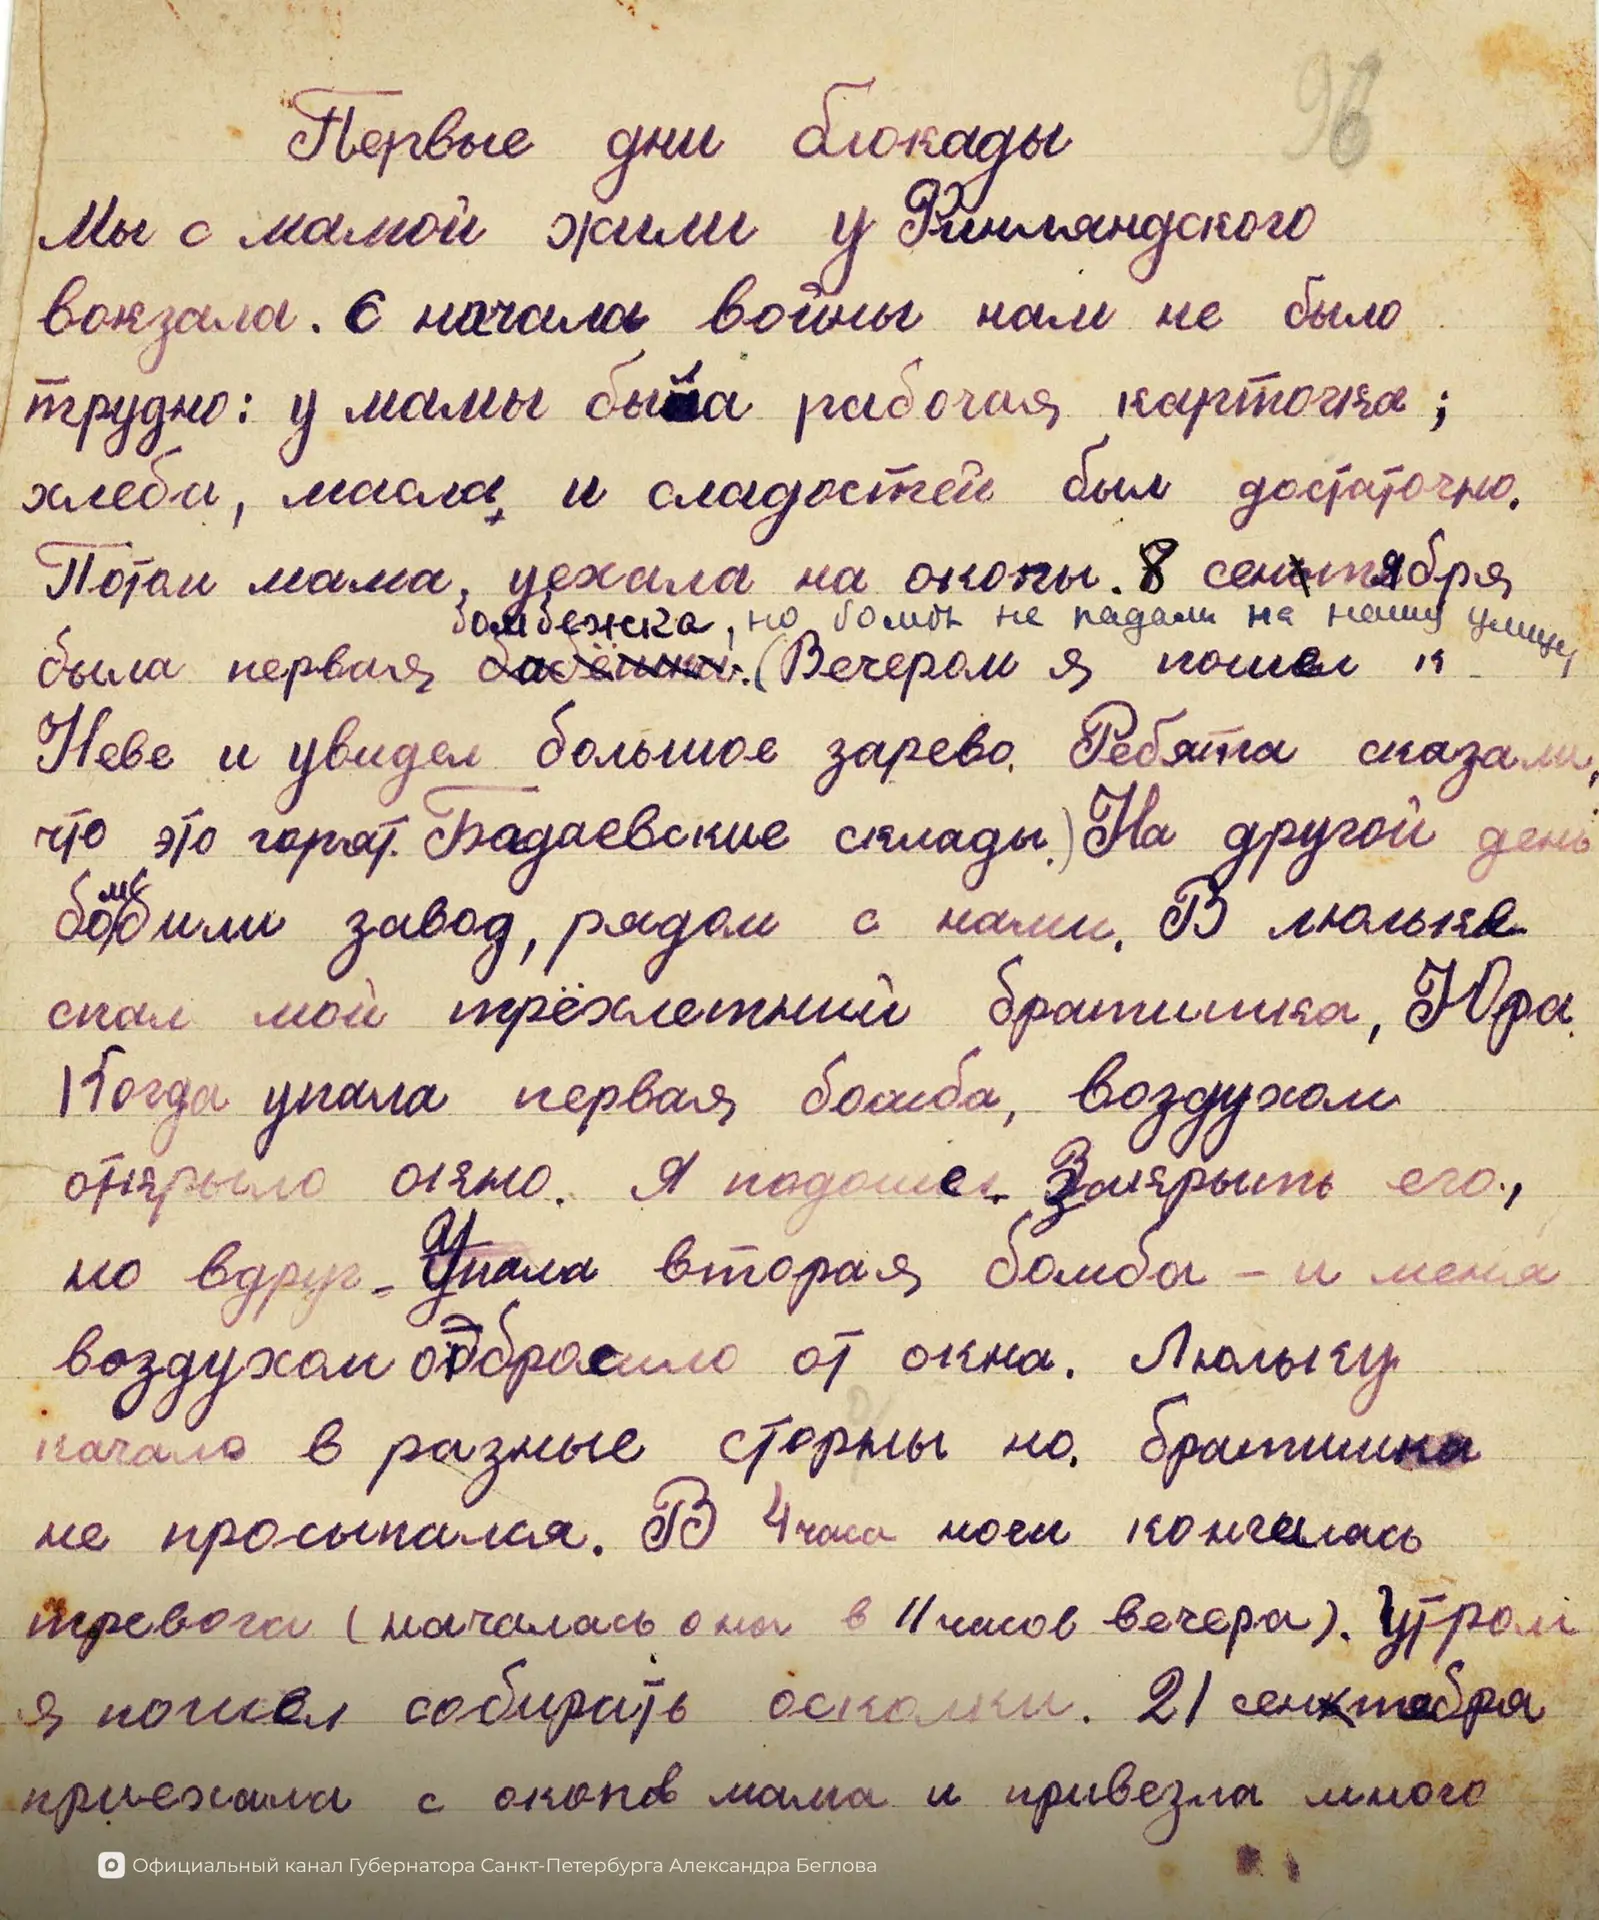 96
Первые дни блокады
Мы с мамой жили у Финляндского
вокзала. С начала войны нам не было
трудно: у мамы была рабочая карточка;
хлеба, масла, и сладостей был достаточно.
Потом мама, уехала на окопы. 8 сентября
бомбежка, но бомбы не падали на нашу улицу,
была первая (Вечером я пошел к
Неве и увидел большое зарево. Ребята сказали,
что это горят. Бадаевские склады.) На другой день
бомбили завод, рядом с нами. В люльке
спал мой трёхлетний братишка, Юра.
Когда упала первая бомба, воздухом
открыло окно. Я подошел закрыть его,
но вдруг - упала вторая бомба - и меня
воздухом отбросило от окна. Люльку
качало в разные сторны но. братишка
не просыпался. В 4 часа ночи кончилась
тревога (началась она в 11 часов вечера). Утром
я пошел собирать осколки. 21 сентября
приехала с окопов мама и привезла много
Официальный канал Губернатора Санкт-Петербурга Александра Беглова